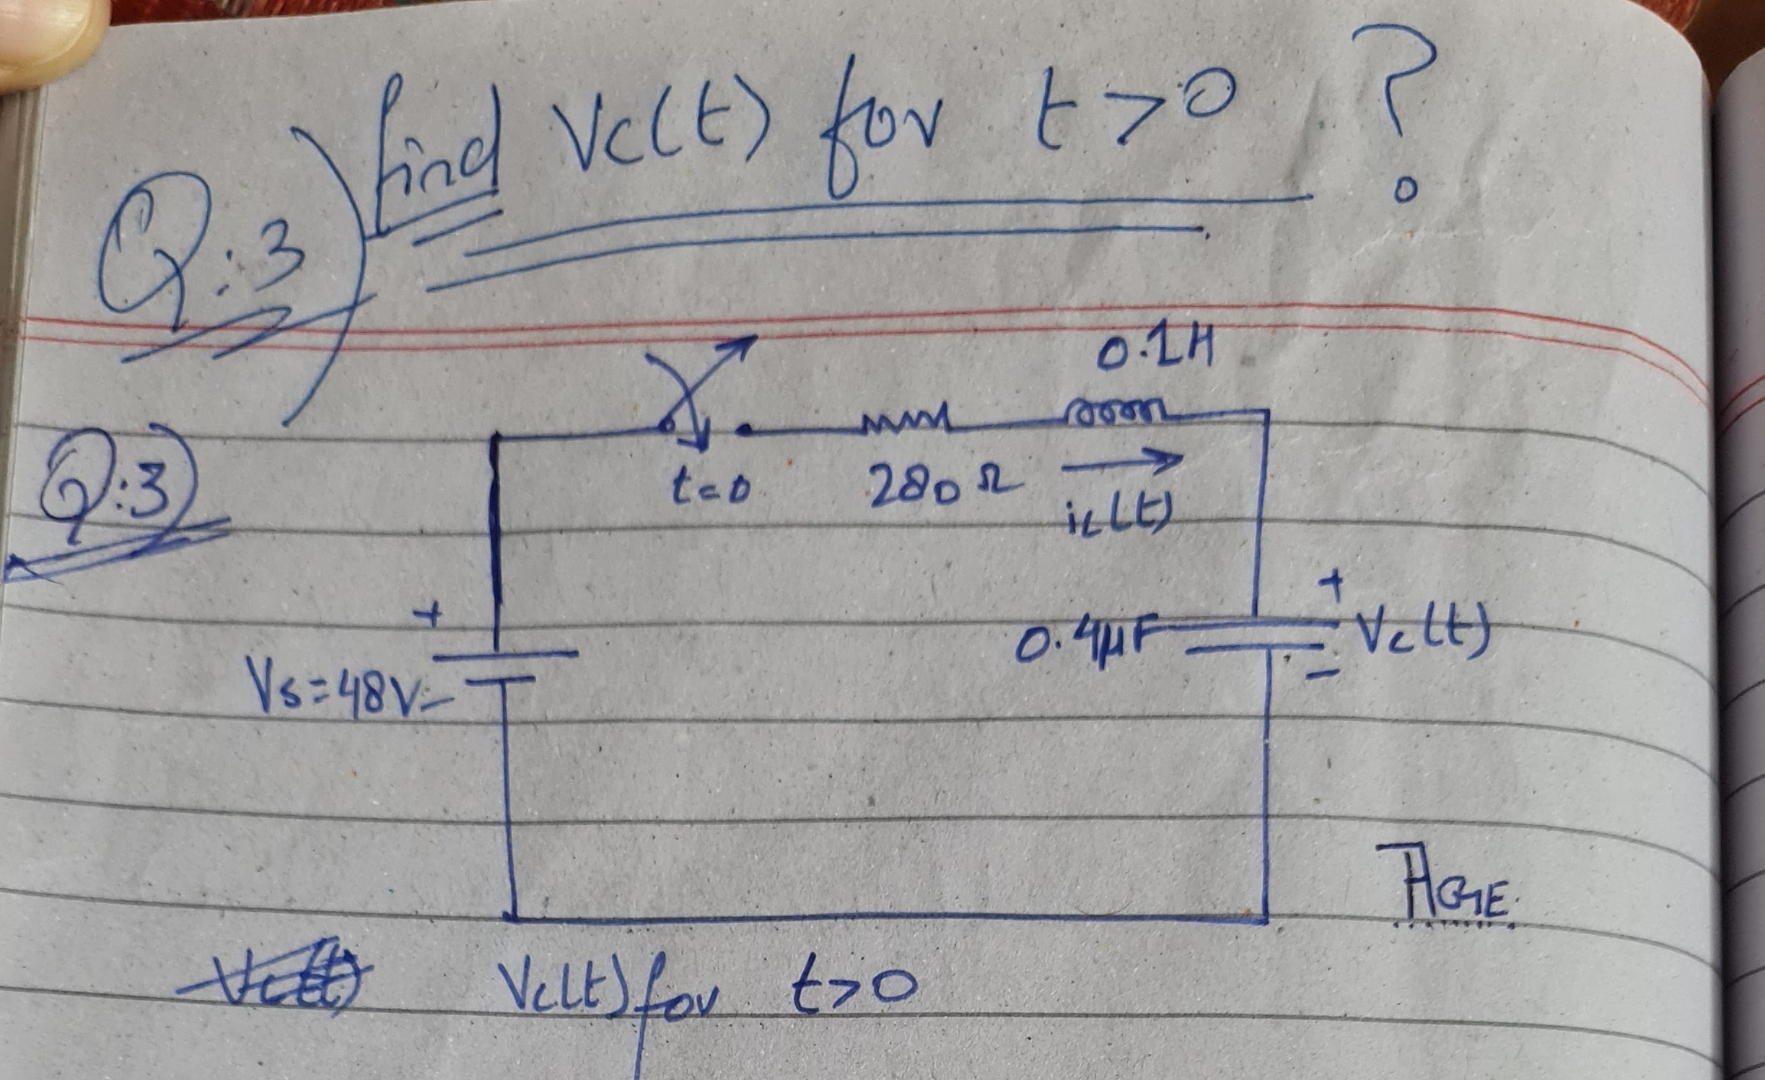 Q:3) find Vc(t) for t>0 ?
0.1H
Q:3)
t=0 280Ω iL(t)
+ +
Vs=48V - 0.4μF Vc(t)
-
Vc(t) for t>0